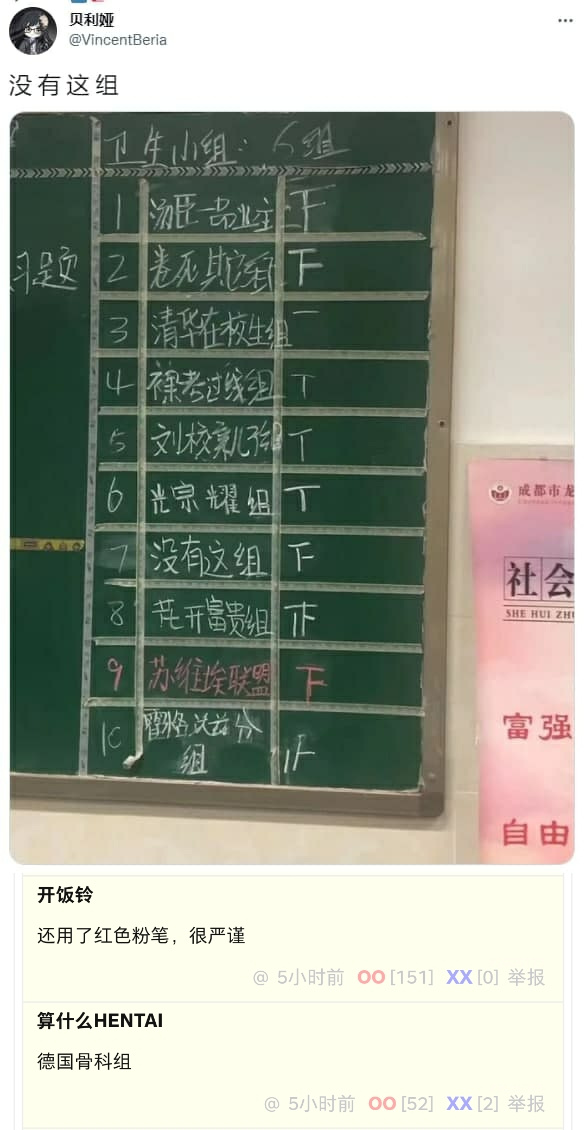 贝利娅
@VincentBeria
没有这组
卫生小组: 6组
习题
1 汤臣一品业主 下
2 卷死其它组 下
3 清华在校生组 一
4 裸考过线组 丅
5 刘校亲儿子组 丅
6 光宗耀组 丅
7 没有这组 下
8 花开富贵组
9 苏维埃联盟 下
10 霍格沃兹分
组
成都市龙
社会
SHE HUI ZHU
富强
自由
开饭铃
还用了红色粉笔，很严谨
@ 5小时前 OO [151] XX [0] 举报
算什么HENTAI
德国骨科组
@ 5小时前 OO [52] XX [2] 举报